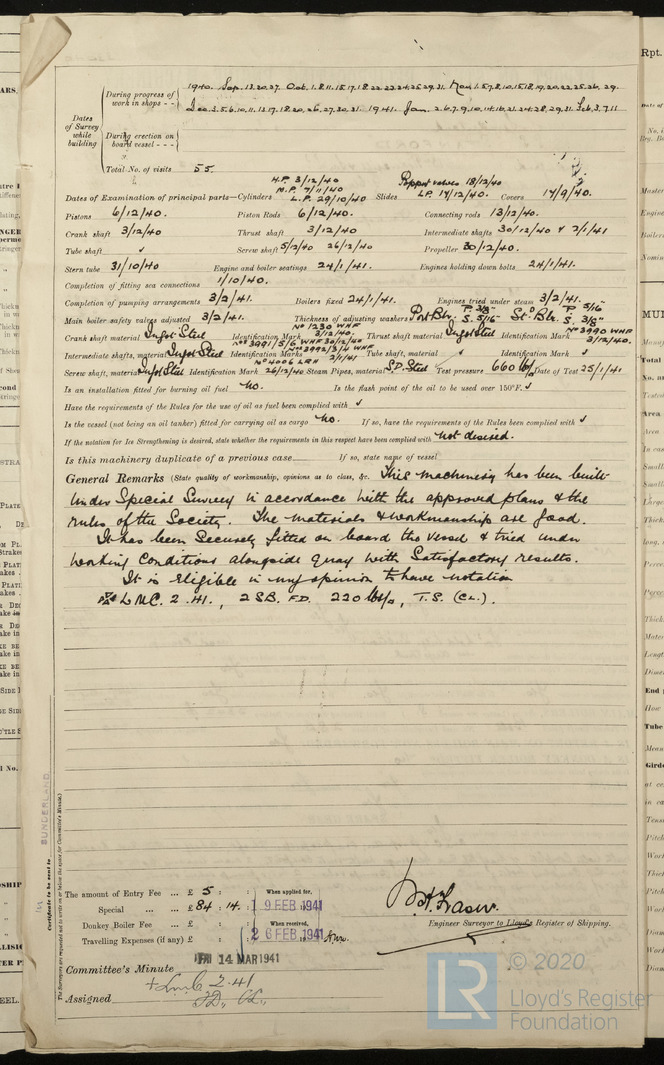 During progress of work in shops - - 1940. Sep. 13.20.27. Oct. 1.8.11.15.17.18.22.23.24.25.29.31. Nov. 1.5.7.8.10.15.18.19.20.22.25.26.29.
Dec. 3.5.6.10.11.13.17.18.20.26.27.30.31. 1941. Jan. 2.6.7.9.10.14.16.21.24.28.29.31. Feb. 3.7.11
Dates of Survey while building
During erection on board vessel - - -
Total No. of visits 55.
H.P. 3/12/40 Poppet valves 18/12/40
M.P. 7/11/40
Dates of Examination of principal parts—Cylinders L.P. 29/10/40 Slides L.P. 17/12/40. Covers 17/9/40.
Pistons 6/12/40. Piston Rods 6/12/40. Connecting rods 13/12/40.
Crank shaft 3/12/40 Thrust shaft 3/12/40 Intermediate shafts 30/12/40 & 2/1/41
Tube shaft ✓ Screw shaft 5/12/40 26/12/40 Propeller 30/12/40.
Stern tube 31/10/40 Engine and boiler seatings 24/1/41. Engines holding down bolts 24/1/41.
Completion of fitting sea connections 1/10/40.
Completion of pumping arrangements 3/2/41. Boilers fixed 24/1/41. Engines tried under steam 3/2/41.
Main boiler safety valves adjusted 3/2/41. Thickness of adjusting washers Port Blr. P. 3/8" S. 5/16" Stbd Blr. P. 5/16" S. 3/8"
Crank shaft material Ingot Steel Identification Mark No 1230 WHF 3/12/40. Thrust shaft material Ingot Steel Identification Mark No 3990 WHF 3/12/40.
Intermediate shafts, material Ingot Steel Identification Marks Nos 3991/5/6 WHF 30/12/40 Nos 3992/3/4 WHF 2/1/41 Tube shaft, material ✓ Identification Mark ✓
Screw shaft, material Ingot Steel Identification Mark No 4006 LRH 26/12/40 Steam Pipes, material S.D. Steel Test pressure 660 lbs/□" Date of Test 25/1/41
Is an installation fitted for burning oil fuel No. Is the flash point of the oil to be used over 150°F. ✓
Have the requirements of the Rules for the use of oil as fuel been complied with ✓
Is the vessel (not being an oil tanker) fitted for carrying oil as cargo No. If so, have the requirements of the Rules been complied with ✓
If the notation for Ice Strengthening is desired, state whether the requirements in this respect have been complied with not desired.
Is this machinery duplicate of a previous case If so, state name of vessel
General Remarks (State quality of workmanship, opinions as to class, &c. This machinery has been built
under Special Survey in accordance with the approved plans & the
rules of the Society. The materials & workmanship are good.
It has been securely fitted on board the vessel & tried under
working conditions alongside quay with satisfactory results.
It is eligible in my opinion to have notation
L.M.C. 2.41., 2 S.B. F.D. 220 lbs/□", T.S. (CL.).
SUNDERLAND
Certificate to be sent to
(The Surveyors are requested not to write on or below the space for Committee's Minute.)
The amount of Entry Fee ... £ 5 : : When applied for,
Special ... ... £ 84 : 14 : 19 FEB 1941
Donkey Boiler Fee ... £ : : When received,
Travelling Expenses (if any) £ : : 26 FEB 1941
Engineer Surveyor to Lloyd's Register of Shipping.
FRI 14 MAR 1941
Committee's Minute
Assigned + LMC 2.41
FD. CL.
LR
© 2020
Lloyd's Register
Foundation